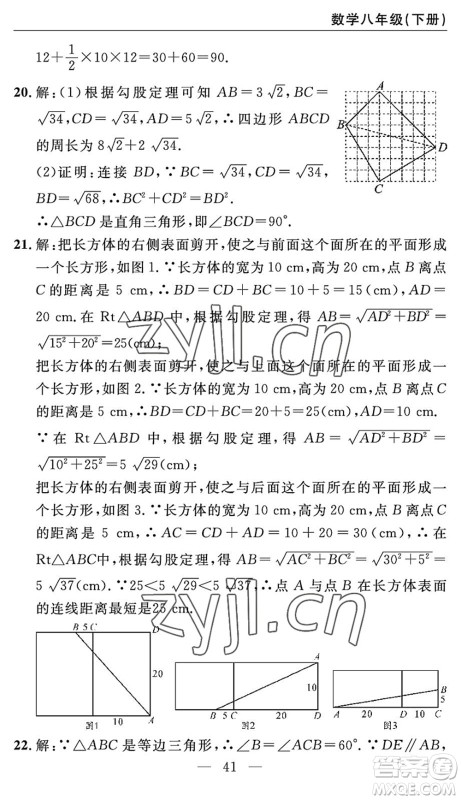 数学八年级(下册)
12+1/2×10×12=30+60=90.
20. 解:(1)根据勾股定理可知 AB=3√2,BC=
√34,CD=√34,AD=5√2,∴四边形 ABCD
的周长为 8√2+2√34.
(2)证明:连接 BD,∵BC=√34,CD=√34,
BD=√68,∴BC²+CD²=BD².
∴△BCD 是直角三角形,即∠BCD=90°.
A
B
D
C
21. 解:把长方体的右侧表面剪开,使之与前面这个面所在的平面形成
一个长方形,如图 1.∵长方体的宽为 10 cm,高为 20 cm,点 B 离点
C 的距离是 5 cm,∴BD=CD+BC=10+5=15(cm),AD=
20 cm.在 Rt△ABD 中,根据勾股定理,得 AB=√(AD²+BD²)=
√(15²+20²)=25(cm);
把长方体的右侧表面剪开,使之与上面这个面所在的平面形成一个
长方形,如图 2.∵长方体的宽为 10 cm,高为 20 cm,点 B 离点 C
的距离是 5 cm,∴BD=CD+BC=20+5=25(cm),AD=10 cm.
在 Rt△ABD 中,根据勾股定理,得 AB=√(AD²+BD²)=
√(10²+25²)=5√29(cm);
把长方体的右侧表面剪开,使之与后面这个面所在的平面形成一个
长方形,如图 3.∵长方体的宽为 10 cm,高为 20 cm,点 B 离点 C
的距离是 5 cm,∴AC=CD+AD=20+10=30(cm).∴在
Rt△ABC中,根据勾股定理,得 AB=√(AC²+BC²)=√(30²+5²)=
5√37(cm).∵25<5√29<5√37,∴点 A 与点 B 在长方体表面
的连线距离最短是25 cm.
B 5 C D
20
10 A
图1
A
10
B 5 C
图2
B
5
A 20 10 C
图3
22. 解:∵△ABC 是等边三角形,∴∠B=∠ACB=60°.∵DE∥AB,
41
zyjl.cn
zyjl.cn
答案圈